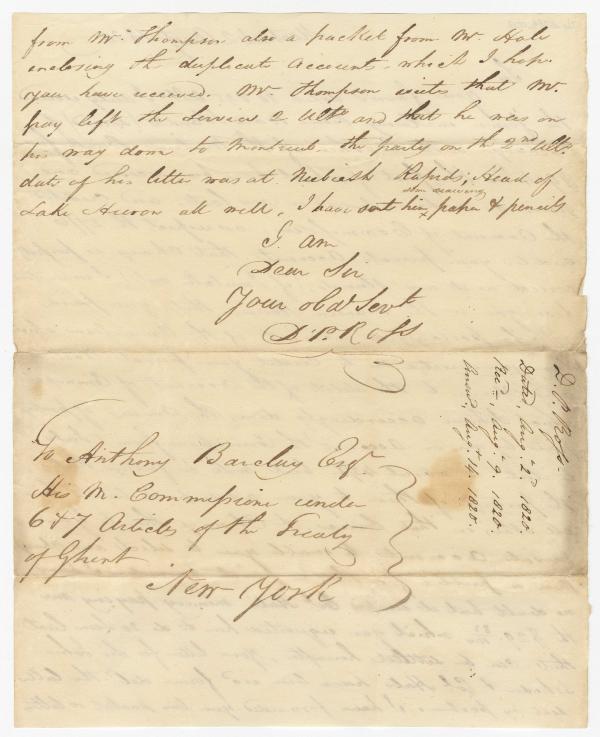 from Mr. Thompson also a packet from Mr. Hale
enclosing the duplicate accounts, which I hope
you have received. Mr. Thompson writes that Mr.
Gray left the Service 2 Ulto. and that he was on
his way down to Montreal. the party on the 2nd Ulto.
date of his letter was at Nebish Rapid; Head of
Lake Huron all well, I have sent him paper & pencils
some drawing
I am
Dear Sir
Your obdt Servt
D. P. Ross
D. P. Ross.
Dated, Aug. 2d 1820.
Recd =, Aug. 9. 1820.
Answd, Aug. 14. 1820.
To Anthony Barclay Esqr.
His M. Commissione under
6 & 7 Articles of the Treaty
of Ghent
New York